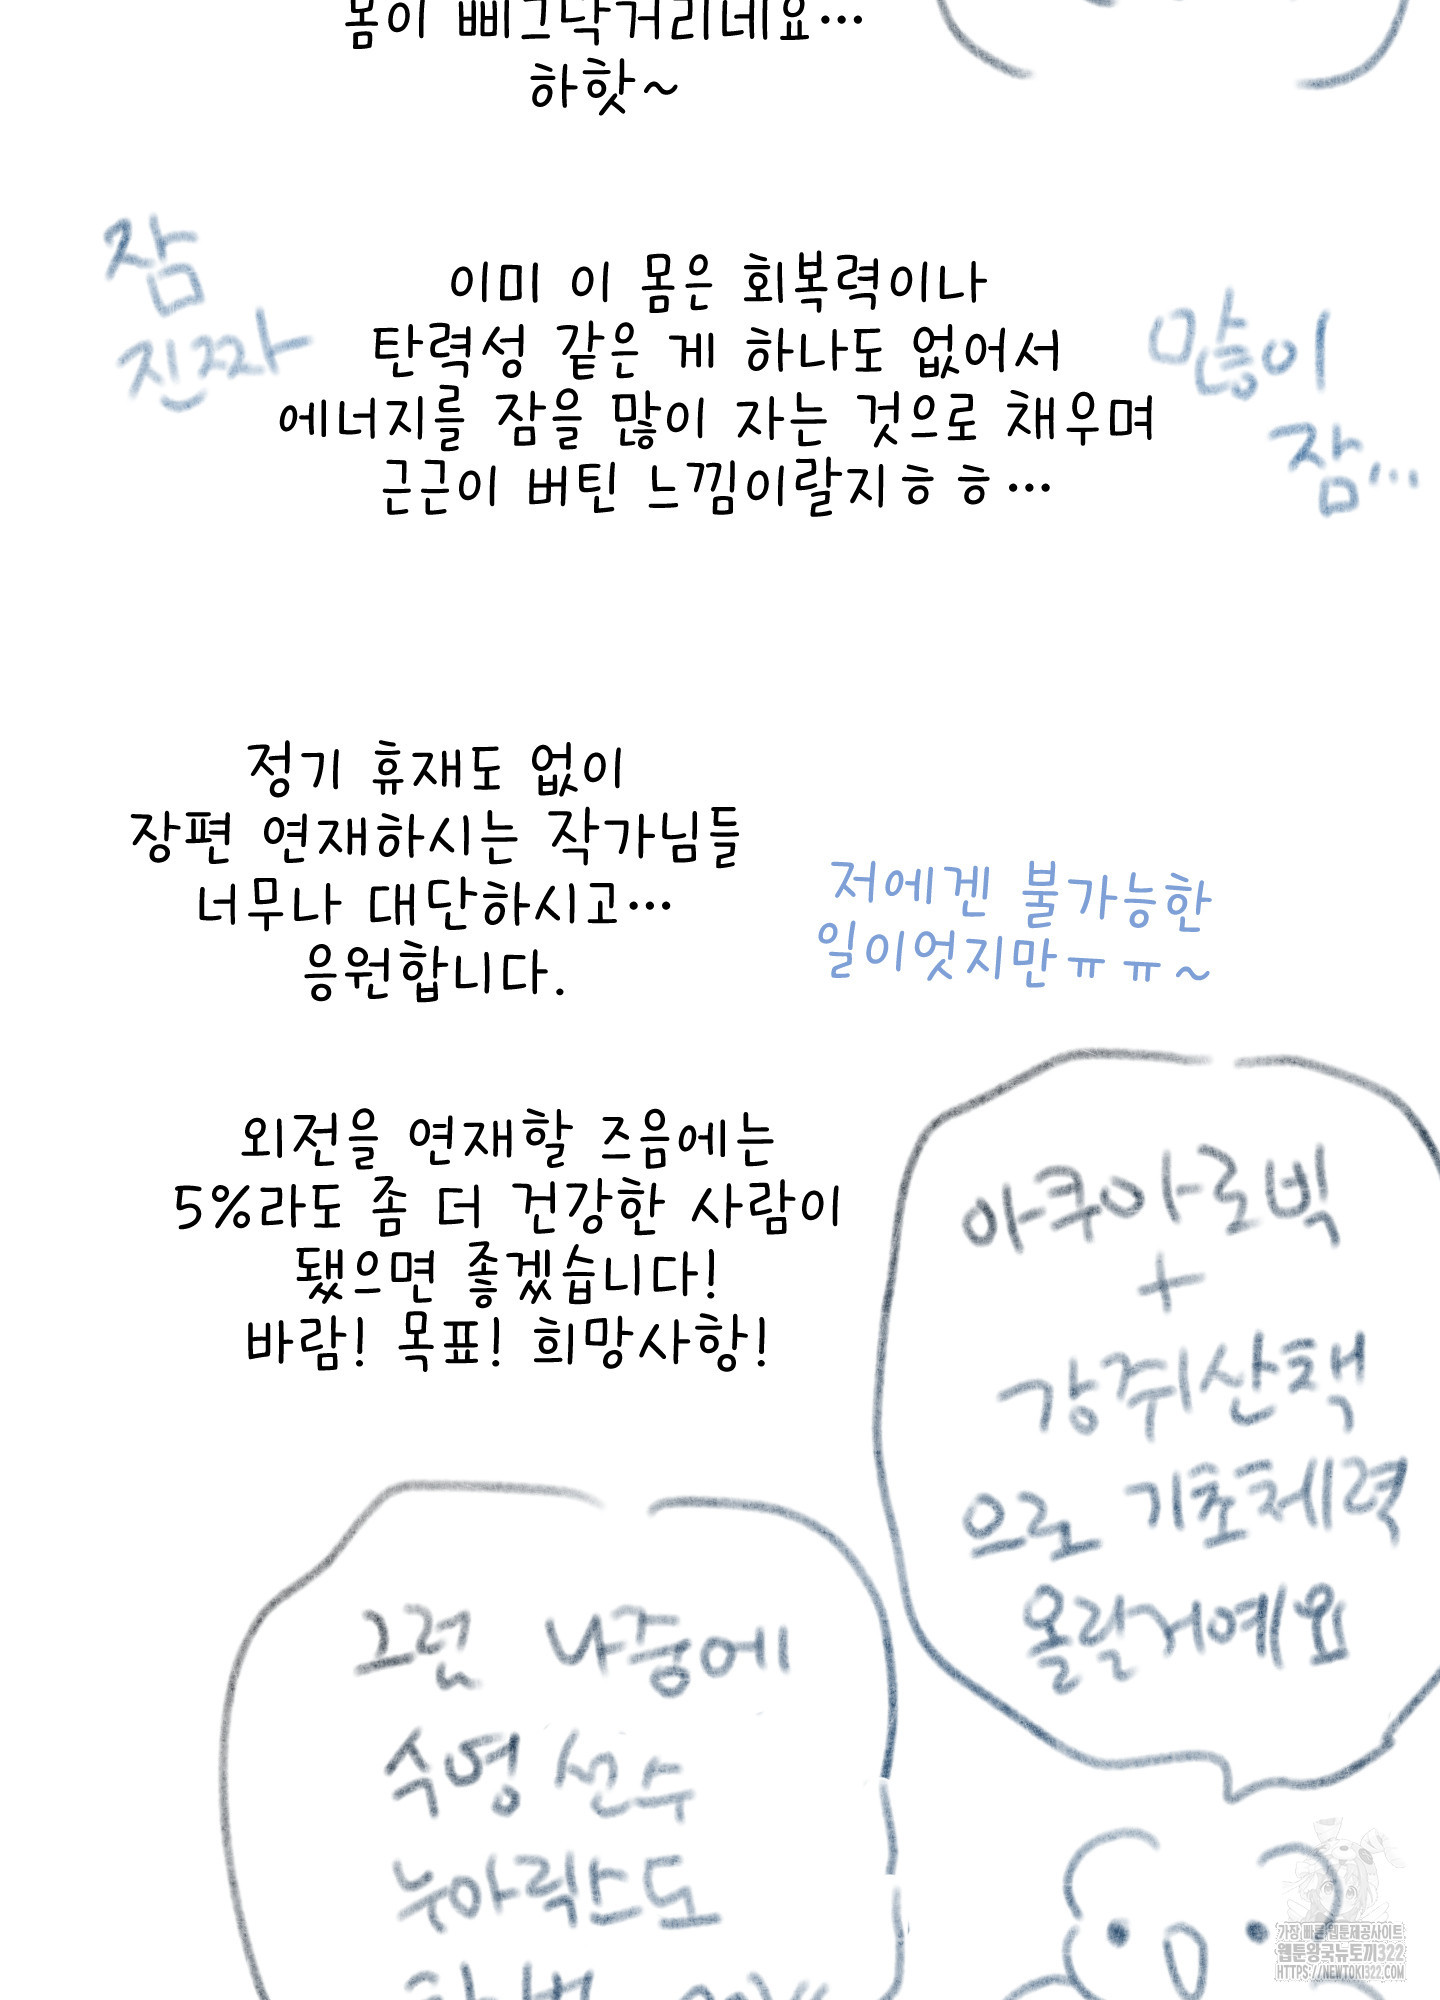 몸이 삐그덕거리네요…
하핫~
잠
진짜
이미 이 몸은 회복력이나
탄력성 같은 게 하나도 없어서
에너지를 잠을 많이 자는 것으로 채우며
근근이 버틴 느낌이랄지ㅎㅎ…
많이
잠...
정기 휴재도 없이
장편 연재하시는 작가님들
너무나 대단하시고…
응원합니다.
저에겐 불가능한
일이엇지만ㅠㅠ~
외전을 연재할 즈음에는
5%라도 좀 더 건강한 사람이
됐으면 좋겠습니다!
바람! 목표! 희망사항!
아쿠아로빅
+
강쥐산책
으로 기초체력
올릴거예요
그런 나중에
수영 선수
누아릭스도
가장 빠른 웹툰제공사이트
웹툰왕국뉴토끼322
HTTPS://NEWTOKI322.COM